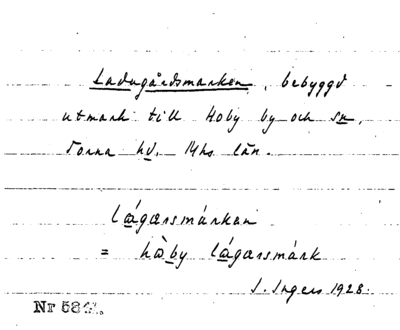 Ladugårdsmarken, bebyggd
utmark till Hoby by och sn,
Torna hd. Mhs län.
lágarsmárken
= hàby lágarsmárk
I. Ingers 1928.
Nr